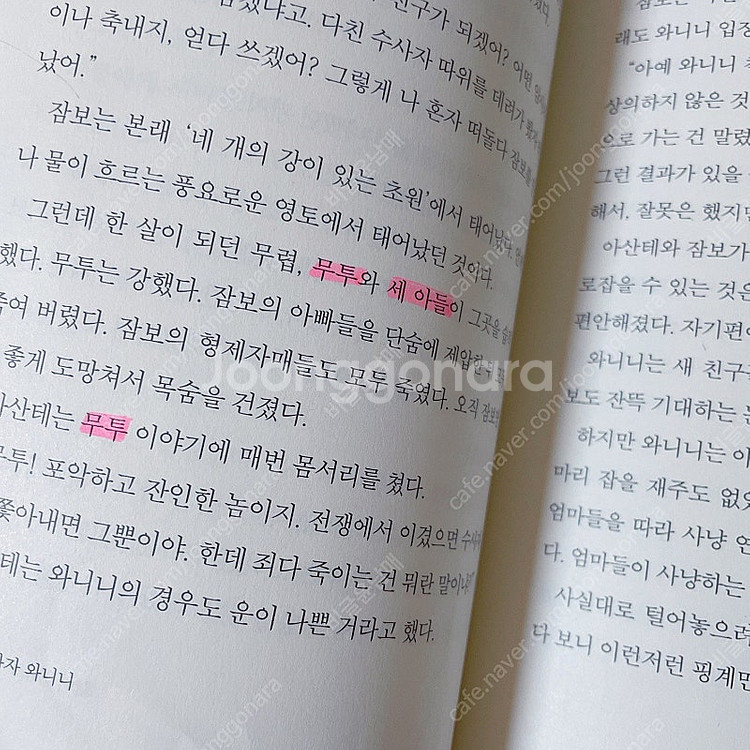 친구가 되겠어? 어떤
이나 축내지, 얻다 쓰겠어? 그렇게 나 혼자 떠돌다 잠보를
났어."
잠보는 본래 '네 개의 강이 있는 초원'에서 태어났다.
나 물이 흐르는 풍요로운 영토에서 태어났던 것이다.
그런데 한 살이 되던 무렵, 무투와 세 아들이 그곳을
했다. 무투는 강했다. 잠보의 아빠들을 단숨에 제압
죽여 버렸다. 잠보의 형제자매들도 모두 죽였다. 오직
좋게 도망쳐서 목숨을 건졌다.
아산테는 무투 이야기에 매번 몸서리를 쳤다.
무투! 포악하고 잔인한 놈이지. 전쟁에서 이겼으면
쫓아내면 그뿐이야. 한데 죄다 죽이는 건 뭐란 말이냐?
테는 와니니의 경우도 운이 나쁜 거라고 했다.
사자 와니니
래도 와니니 입장
"아예 와니니
상의하지 않은 것
으로 가는 건 말렸
그런 결과가 있을
해서, 잘못은 했지만
아산테와 잠보가
로잡을 수 있는 것은
편안해졌다. 자기편이
와니니는 새 친구
보도 잔뜩 기대하는
하지만 와니니는 이
마리 잡을 재주도 없
엄마들을 따라 사냥 연
다. 엄마들이 사냥하는
사실대로 털어놓으려
다 보니 이런저런 핑계만
Joonggonara
cafe.naver.com/joonggonara